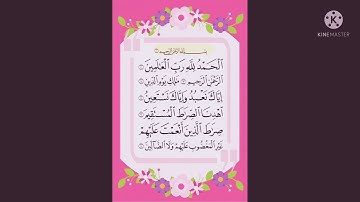 بِسْمِ اللَّهِ الرَّحْمَٰنِ الرَّحِيمِ
الْحَمْدُ لِلَّهِ رَبِّ الْعَالَمِينَ
الرَّحْمَٰنِ الرَّحِيمِ مَالِكِ يَوْمِ الدِّينِ
إِيَّاكَ نَعْبُدُ وَإِيَّاكَ نَسْتَعِينُ
اهْدِنَا الصِّرَاطَ الْمُسْتَقِيمَ
صِرَاطَ الَّذِينَ أَنْعَمْتَ عَلَيْهِمْ
غَيْرِ الْمَغْضُوبِ عَلَيْهِمْ وَلَا الضَّالِّينَ
KINEMASTER